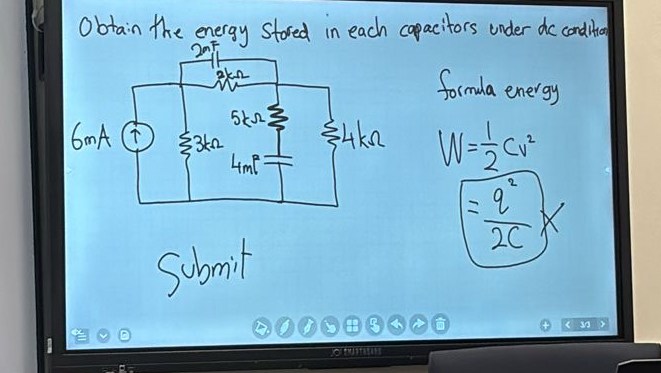 Obtain the energy stored in each capacitors under dc condition
2mF
2kΩ
formula energy
5kΩ
6mA
3kΩ
4kΩ
4mF
W=1/2 Cv²
= q²/2C
Submit
3/3
SMARTBOARD